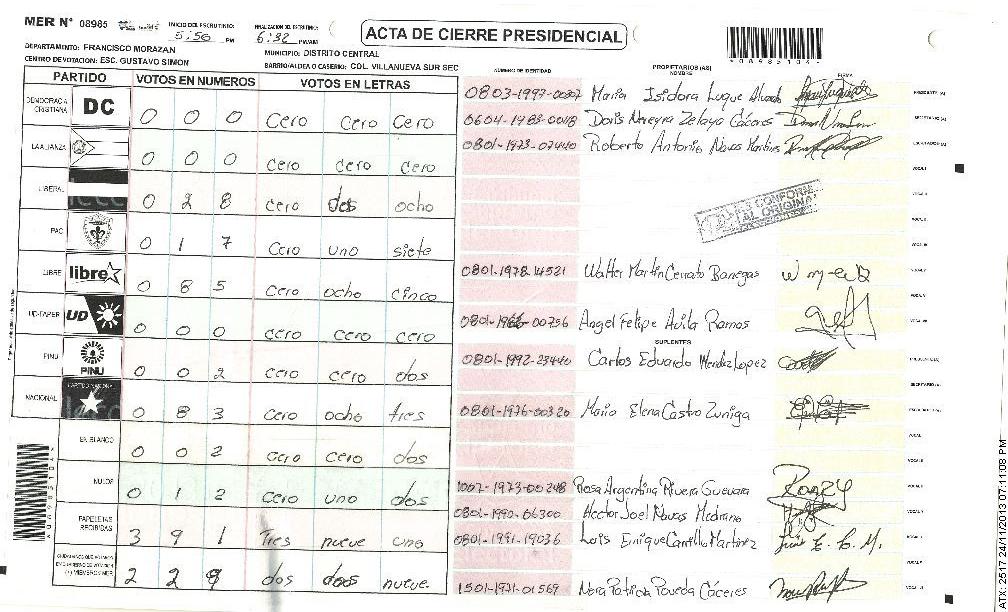 MER N° 08985 INICIO DEL ESCRUTINIO: 5:50 PM FINALIZACION DEL ESCRUTINIO: 6:32 PM/AM
ACTA DE CIERRE PRESIDENCIAL
*089851041*
DEPARTAMENTO: FRANCISCO MORAZAN MUNICIPIO: DISTRITO CENTRAL
CENTRO DE VOTACION: ESC. GUSTAVO SIMON BARRIO/ALDEA O CASERIO: COL. VILLANUEVA SUR SEC
PARTIDO VOTOS EN NUMEROS VOTOS EN LETRAS
DEMOCRACIA CRISTIANA DC 0 0 0 Cero Cero Cero
LA ALIANZA 0 0 0 cero cero cero
LIBERAL 0 2 8 cero dos ocho
PAC 0 1 7 Cero uno siete
LIBRE libre 0 8 5 cero ocho cinco
UD-FAPER UD 0 0 0 cero cero cero
PINU PINU 0 0 2 cero cero dos
NACIONAL 0 8 3 cero ocho tres
EN BLANCO 0 0 2 cero cero dos
NULOS 0 1 2 cero uno dos
PAPELETAS RECIBIDAS 3 9 1 Tres nueve uno
2 2 9 dos dos nueve.
NÚMERO DE IDENTIDAD PROPIETARIOS (AS) NOMBRE FIRMA
0803-1997-00307 Maria Isidora Luque PRESIDENTE (A)
0604-1983-00418 Doris Nereyra Zelaya Cáceres SECRETARIO (A)
0801-1973-07440 Roberto Antonio Navas Martines ESCRUTADOR (A)
VOCAL I
VOCAL II
ES CONFORME AL ORIGINAL
VOCAL III
0801-1978-14521 Walter Martin Cerrato Banegas
00756 Angel Felipe Avila Ramos
SUPLENTES
0801-1992-23440 Carlos Eduardo Mendez Lopez PRESIDENTE (A)
SECRETARIO (A)
0801-1976-00320 Maria Elena Castro Zuniga ESCRUTADOR (A)
VOCAL I
VOCAL II
1007-1973-00248 Rosa Argentina Rivera Guevara
0801-1990-06300 Hector Joel Navas Medrano
0801-1991-19036 Luis Enrique Cantillo Martinez Luis E. C. M.
1501-1971-01569 Nora Patricia Poveda Cáceres
ATX: 2517 24/11/2013 07:11:08 PM